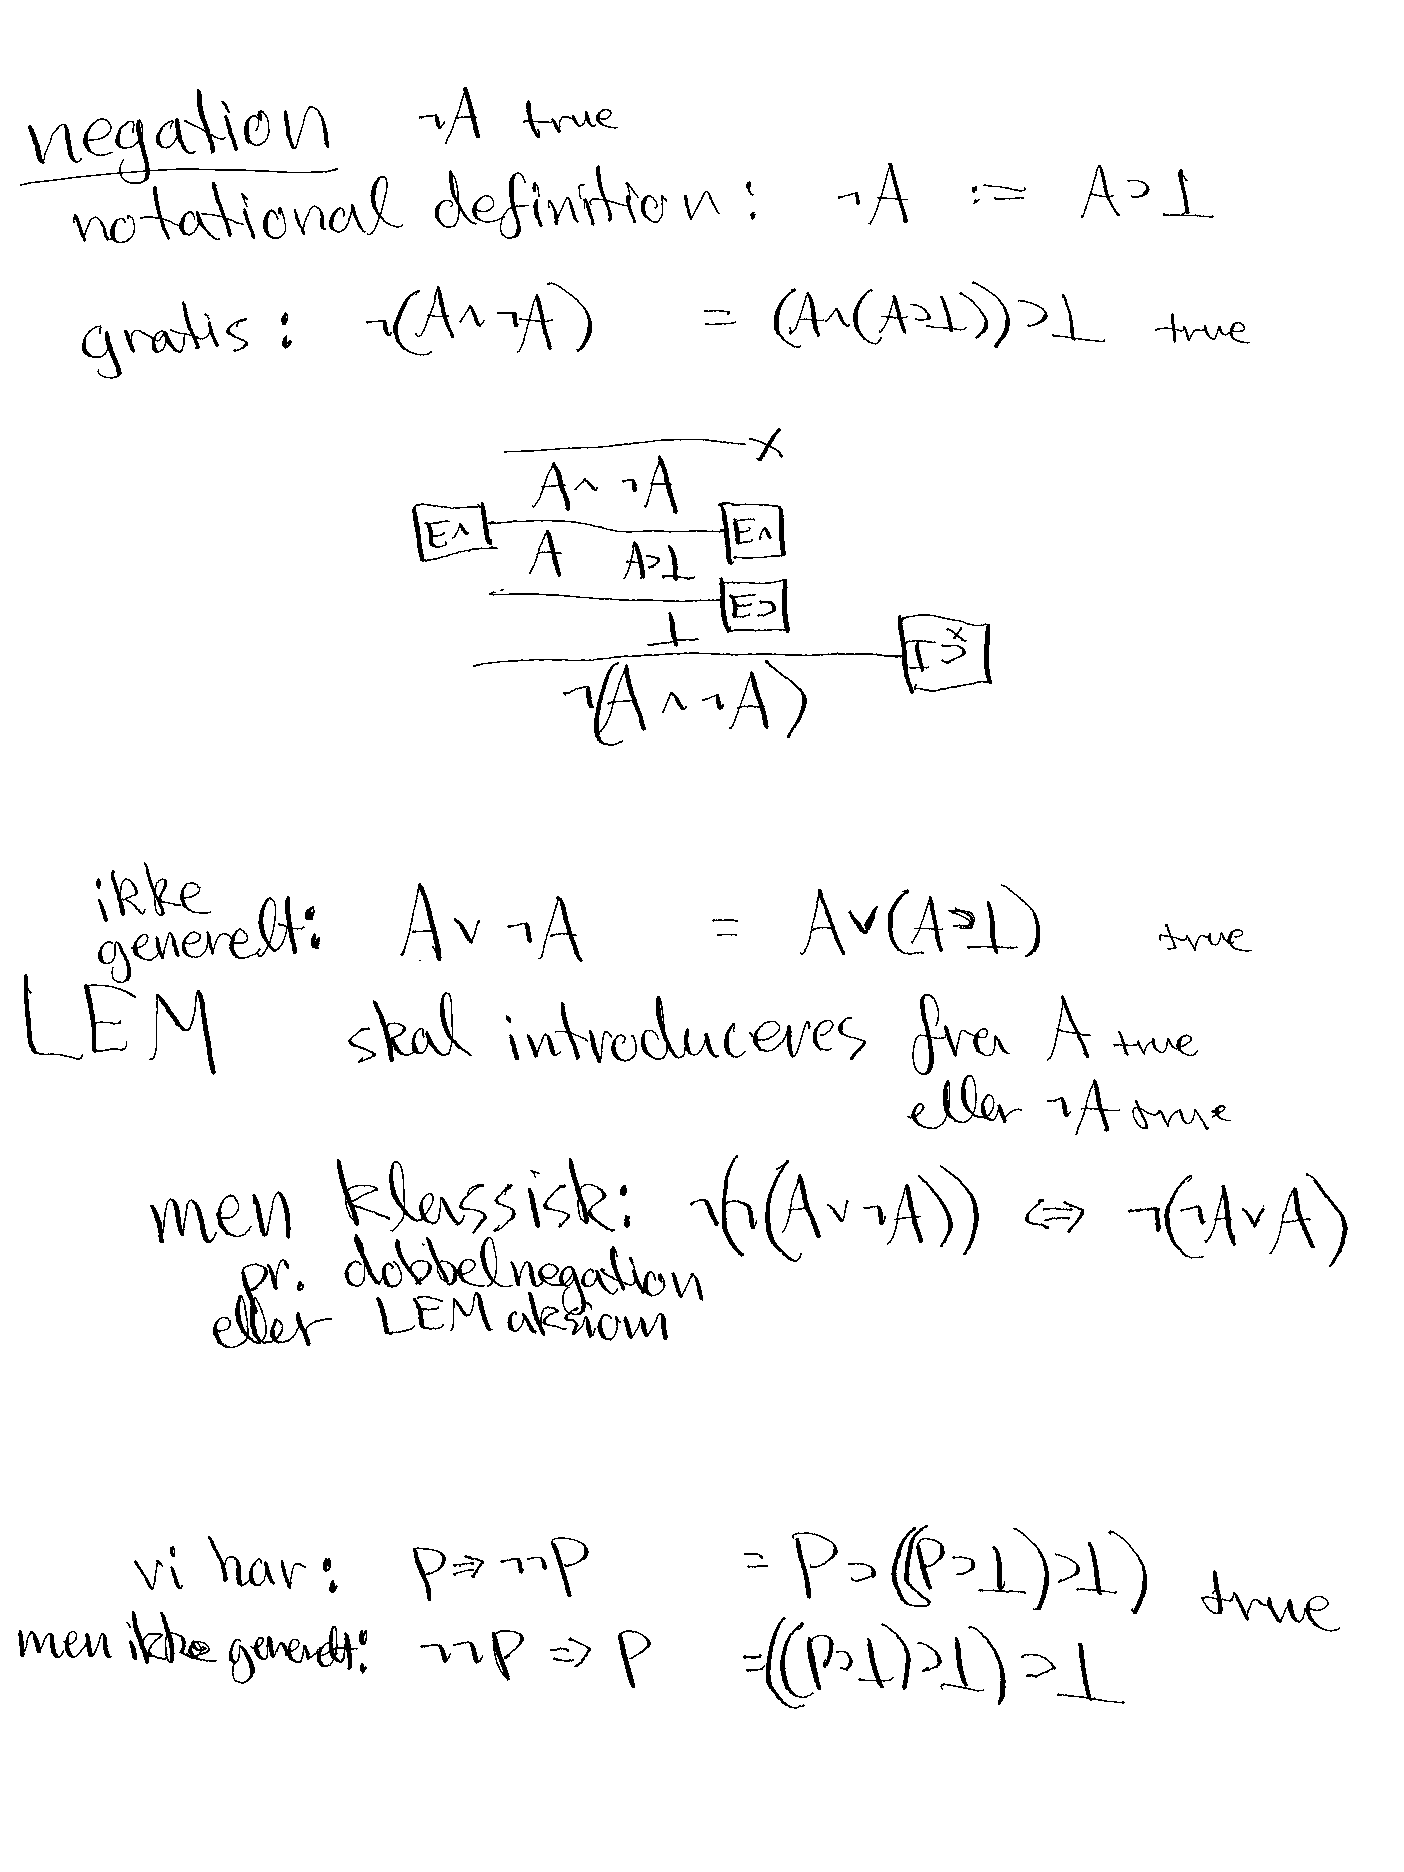 negation ¬A true
notational definition: ¬A := A⊃⊥
gratis: ¬(A∧¬A) = (A∧(A⊃⊥))⊃⊥ true
x
A∧¬A
E∧ E∧
A A⊃⊥
E⊃
⊥
I⊃ˣ
¬(A∧¬A)
ikke
generelt: A∨¬A = A∨(A⊃⊥) true
LEM skal introduceres fra A true
eller ¬A true
men klassisk: ¬(¬(A∨¬A)) ⇔ ¬(¬A∨A)
pr. dobbelnegation
eller LEM aksiom
vi har: P⇒¬¬P = P⊃((P⊃⊥)⊃⊥) true
men ikke generelt: ¬¬P ⇒ P =((P⊃⊥)⊃⊥)⊃⊥